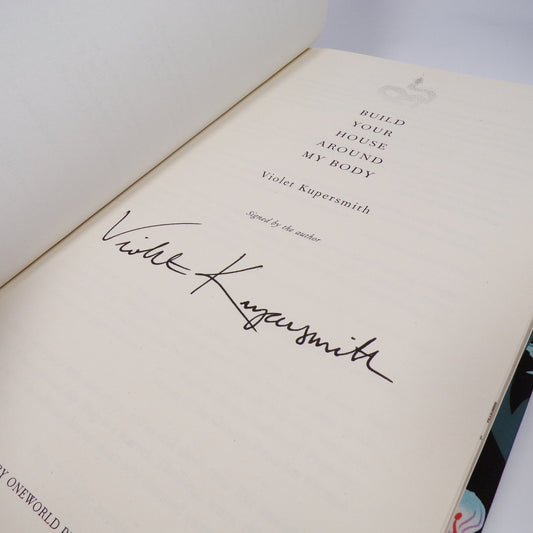 BUILD
YOUR
HOUSE
AROUND
MY BODY
Violet Kupersmith
Signed by the author
Violet Kupersmith
BY ONEWORLD